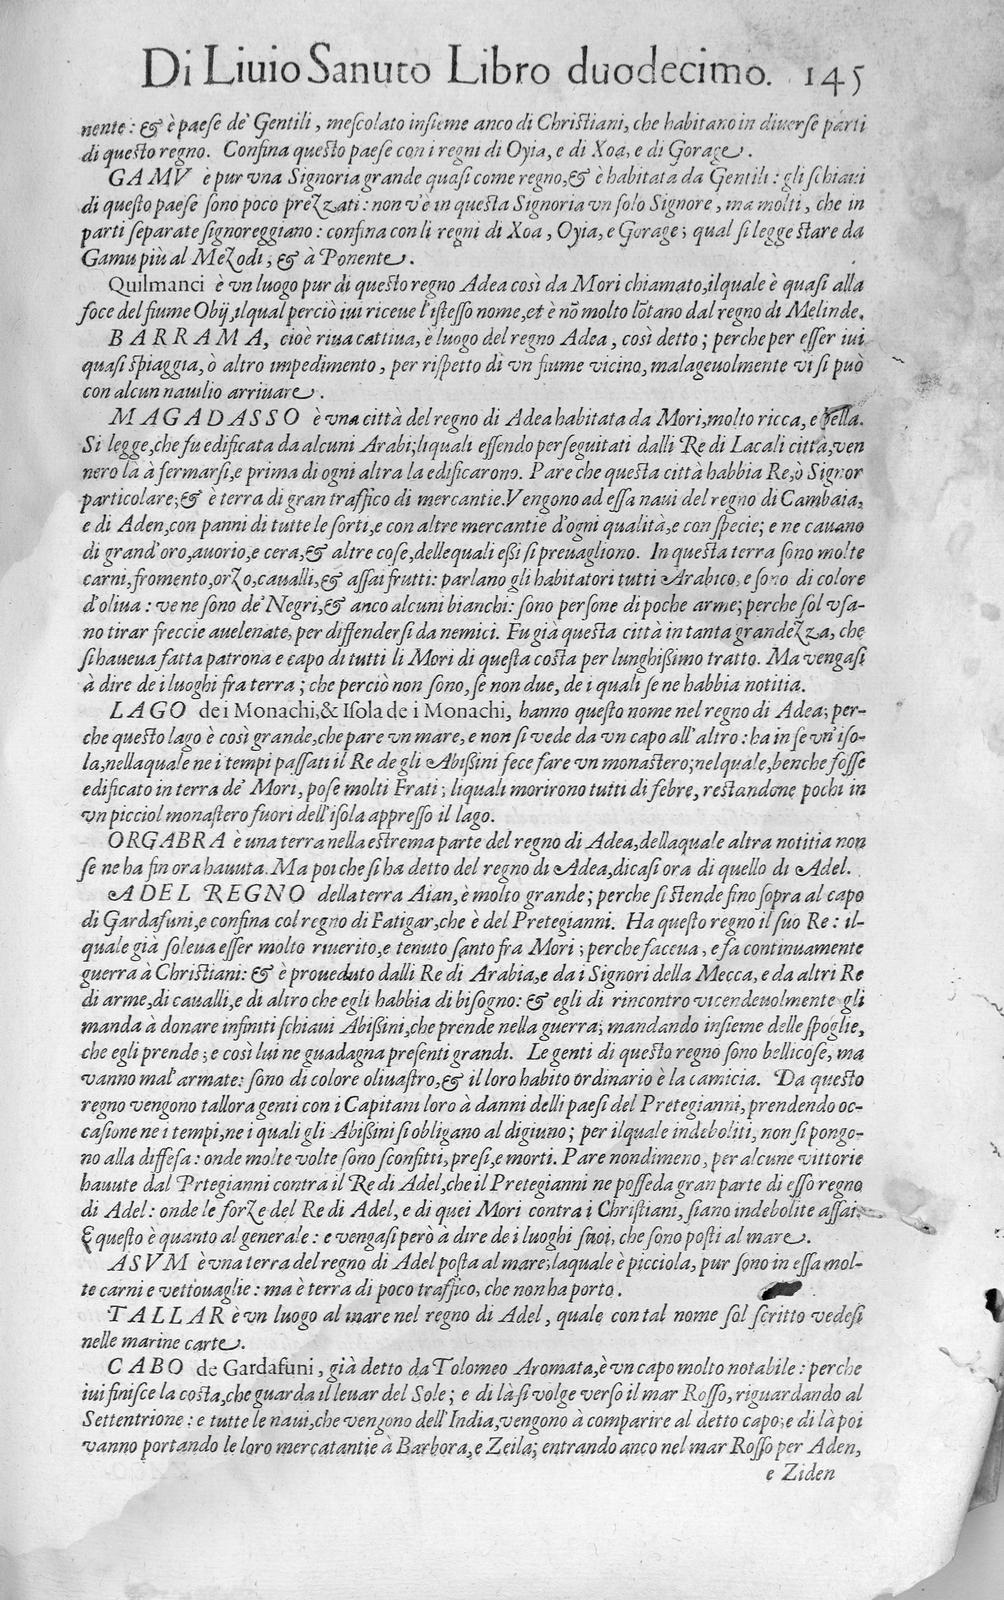 Di Liuio Sanuto Libro duodecimo. 145
nente: & è paese de' Gentili, mescolato insieme anco di Christiani, che habitano in diuerse parti
di questo regno. Confina questo paese con i regni di Oyia, e di Xoa, e di Gorage.
GAMV è pur vna Signoria grande quasi come regno, & è habitata da Gentili: gli schiaui
di questo paese sono poco prezzati: non v'è in questa Signoria vn solo Signore, ma molti, che in
parti separate signoreggiano: confina con li regni di Xoa, Oyia, e Gorage; qual si legge stare da
Gamu più al Mezodì, & à Ponente.
Quilmanci è vn luogo pur di questo regno Adea così da Mori chiamato, ilquale è quasi alla
foce del fiume Obij, ilqual perciò iui riceue l'istesso nome, et è nõ molto lõtano dal regno di Melinde.
BARRAMA, cioè riua cattiua, è luogo del regno Adea, così detto; perche per esser iui
quasi spiaggia, ò altro impedimento, per rispetto di vn fiume vicino, malageuolmente vi si può
con alcun nauilio arriuare.
MAGADASSO è vna città del regno di Adea habitata da Mori, molto ricca, e bella.
Si legge, che fu edificata da alcuni Arabi; liquali essendo perseguitati dalli Re di Lacali città, ven
nero là à fermarsi, e prima di ogni altra la edificarono. Pare che questa città habbia Re, ò Signor
particolare; & è terra di gran traffico di mercantie. Vengono ad essa naui del regno di Cambaia,
e di Aden, con panni di tutte le sorti, e con altre mercantie d'ogni qualità, e con specie; e ne cauano
di grand'oro, auorio, e cera, & altre cose, delle quali essi si preuagliono. In questa terra sono molte
carni, fromento, orzo, caualli, & assai frutti: parlano gli habitatori tutti Arabico, e sono di colore
d'oliua: ve ne sono de' Negri, & anco alcuni bianchi: sono persone di poche arme; perche sol vsa-
no tirar freccie auelenate, per diffendersi da nemici. Fu già questa città in tanta grandezza, che
si haueua fatta patrona e capo di tutti li Mori di questa costa per lunghissimo tratto. Ma vengasi
à dire de i luoghi fra terra; che perciò non sono, se non due, de i quali se ne habbia notitia.
LAGO de i Monachi, & Isola de i Monachi, hanno questo nome nel regno di Adea; per-
che questo lago è così grande, che pare vn mare, e non si vede da vn capo all'altro: ha in se vn'iso-
la, nella quale ne i tempi passati il Re de gli Abissini fece fare vn monastero; nel quale, benche fosse
edificato in terra de' Mori, pose molti Frati; liquali morirono tutti di febre, restandone pochi in
vn picciol monastero fuori dell'isola appresso il lago.
ORGABRA è una terra nella estrema parte del regno di Adea, della quale altra notitia non
se ne ha fin ora hauuta. Ma poi che si ha detto del regno di Adea, dicasi ora di quello di Adel.
ADEL REGNO della terra Aian, è molto grande; perche si stende fino sopra al capo
di Gardafuni, e confina col regno di Fatigar, che è del Pretegianni. Ha questo regno il suo Re: il-
quale già soleua esser molto riuerito, e tenuto santo fra Mori; perche faceua, e fa continuamente
guerra à Christiani: & è proueduto dalli Re di Arabia, e da i Signori della Mecca, e da altri Re
di arme, di caualli, e di altro che egli habbia di bisogno: & egli di rincontro vicendeuolmente gli
manda à donare infiniti schiaui Abissini, che prende nella guerra; mandando insieme delle spoglie,
che egli prende; e così lui ne guadagna presenti grandi. Le genti di questo regno sono bellicose, ma
vanno mal'armate: sono di colore oliuastro, & il loro habito ordinario è la camicia. Da questo
regno vengono tallora genti con i Capitani loro à danni delli paesi del Pretegianni, prendendo oc-
casione ne i tempi, ne i quali gli Abissini si obligano al digiuno; per ilquale indeboliti, non si pongo-
no alla diffesa: onde molte volte sono sconfitti, presi, e morti. Pare nondimeno, per alcune vittorie
hauute dal Prtegianni contra il Re di Adel, che il Pretegianni ne posseda gran parte di esso regno
di Adel: onde le forze del Re di Adel, e di quei Mori contra i Christiani, siano indebolite assai.
E questo è quanto al generale: e vengasi però a dire de i luoghi suoi, che sono posti al mare.
ASVM è vna terra del regno di Adel posta al mare; laquale è picciola, pur sono in essa mol-
te carni e vettouaglie: ma è terra di poco traffico, che non ha porto.
TALLAR è vn luogo al mare nel regno di Adel, quale con tal nome sol scritto vedesi
nelle marine carte.
CABO de Gardafuni, già detto da Tolomeo Aromata, è vn capo molto notabile: perche
iui finisce la costa, che guarda il leuar del Sole; e di là si volge verso il mar Rosso, riguardando al
Settentrione: e tutte le naui, che vengono dell'India, vengono à comparire al detto capo; e di là poi
vanno portando le loro mercatantie à Barbora, e Zeila; entrando anco nel mar Rosso per Aden,
e Ziden